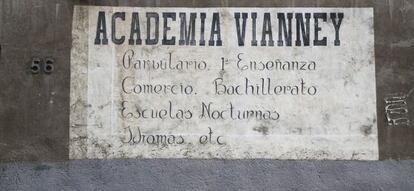 ACADEMIA VIANNEY
56
Parvulario. 1ª Enseñanza
Comercio. Bachillerato
Escuelas Nocturnas
Idiomas, etc